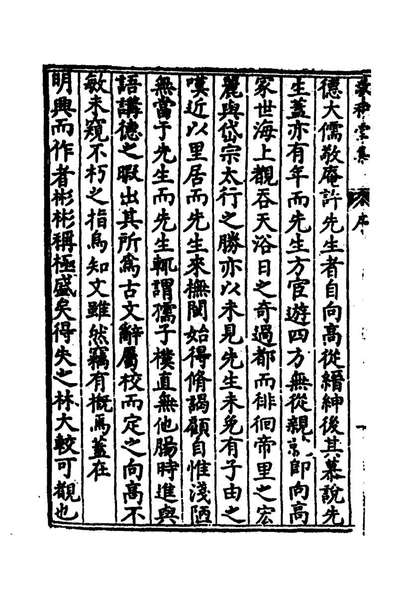 敬和堂集　序
德大儒敬庵許先生者自向高從縉紳後其慕說先
生蓋亦有年而先生方宦遊四方無從親炙即向高
家世海上觀吞天浴日之奇過都而徘徊帝里之宏
麗與岱宗太行之勝亦以未見先生未免有子由之
嘆近以里居而先生來撫閩始得脩謁顧自惟淺陋
無當于先生而先生輒謂孺子樸直無他腸時進與
語講德之暇出其所為古文辭屬校而定之向高不
敏未窺不朽之指焉知文雖然竊有概焉蓋在
明興而作者彬彬稱極盛矣得失之林大較可觀也